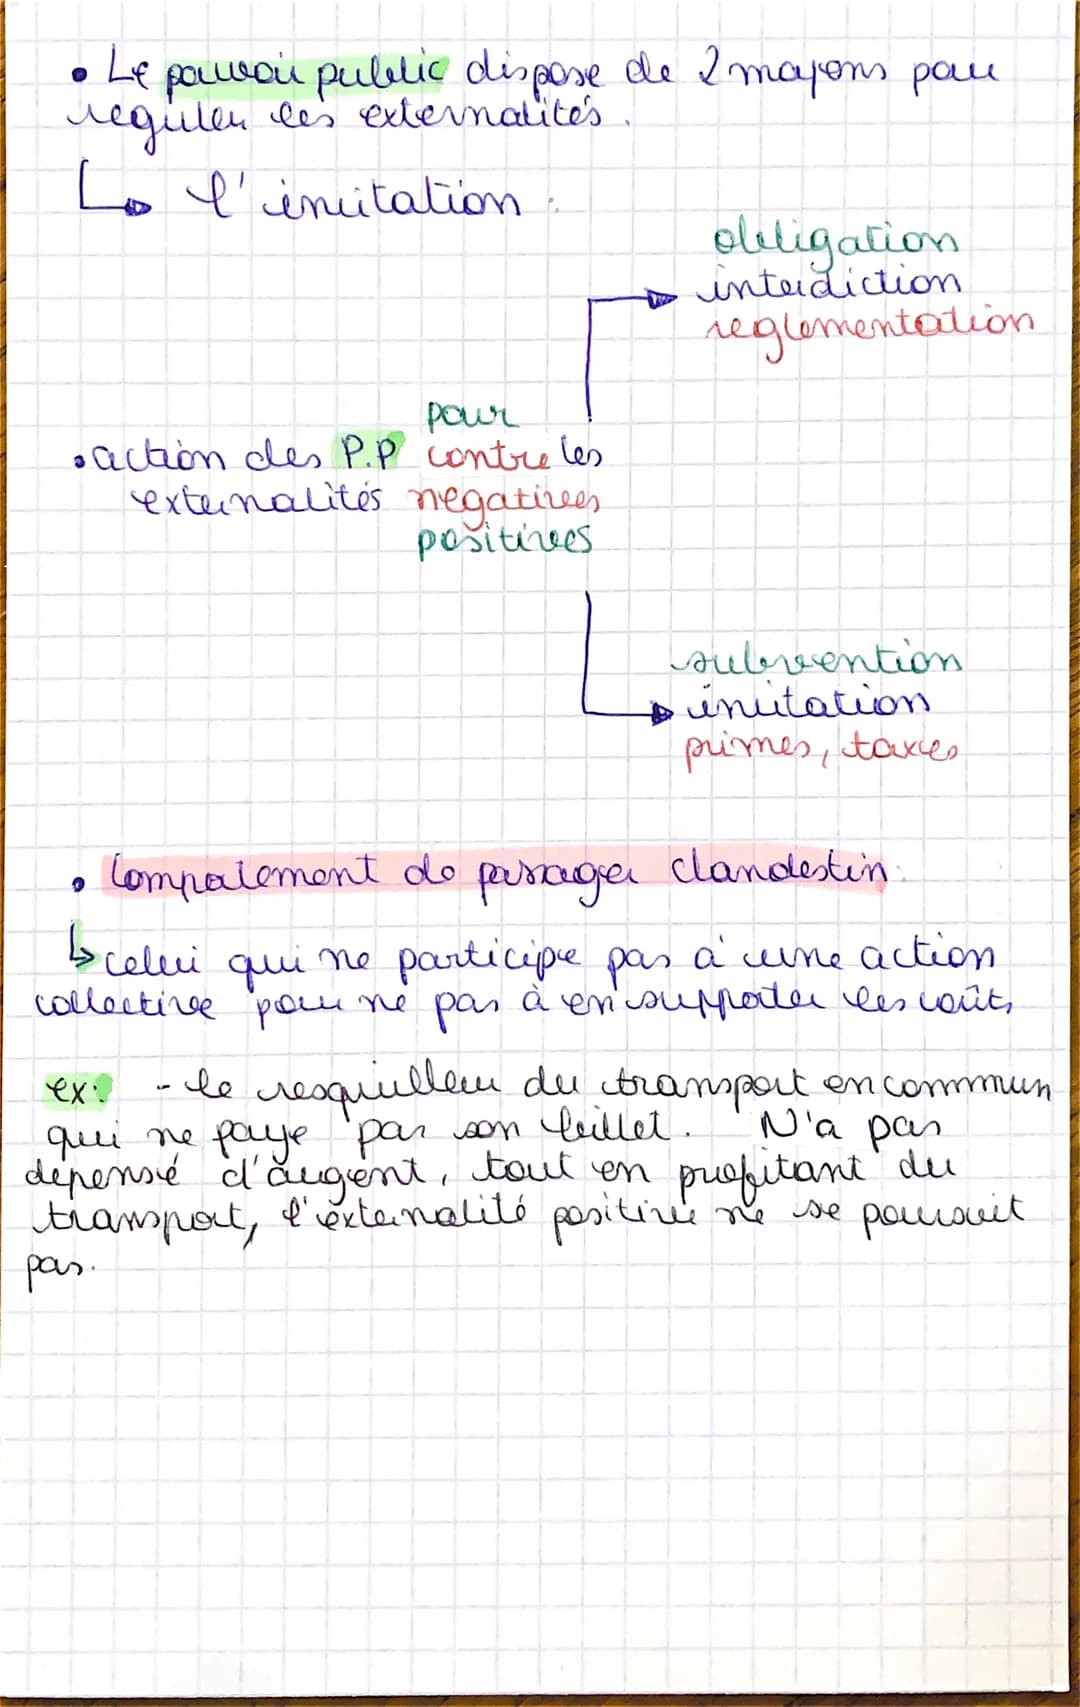 • Le pouvoir public dispose de 2 moyens pour
reguler les externalités.
↳ l'incitation :
obligation
interdiction
reglementation
pour
• action des P.P contre les
externalités negatives
positives
subvention
incitation
primes, taxes
• Comportement de passager clandestin:
↳ celui qui ne participe pas à une action
collective pour ne pas à en supporter les coûts
ex: - le resquilleur du transport en commun
qui ne paye pas son billet. N'a pas
depensé d'argent, tout en profitant du
transport, l'externalité positive ne se poursuit
pas.